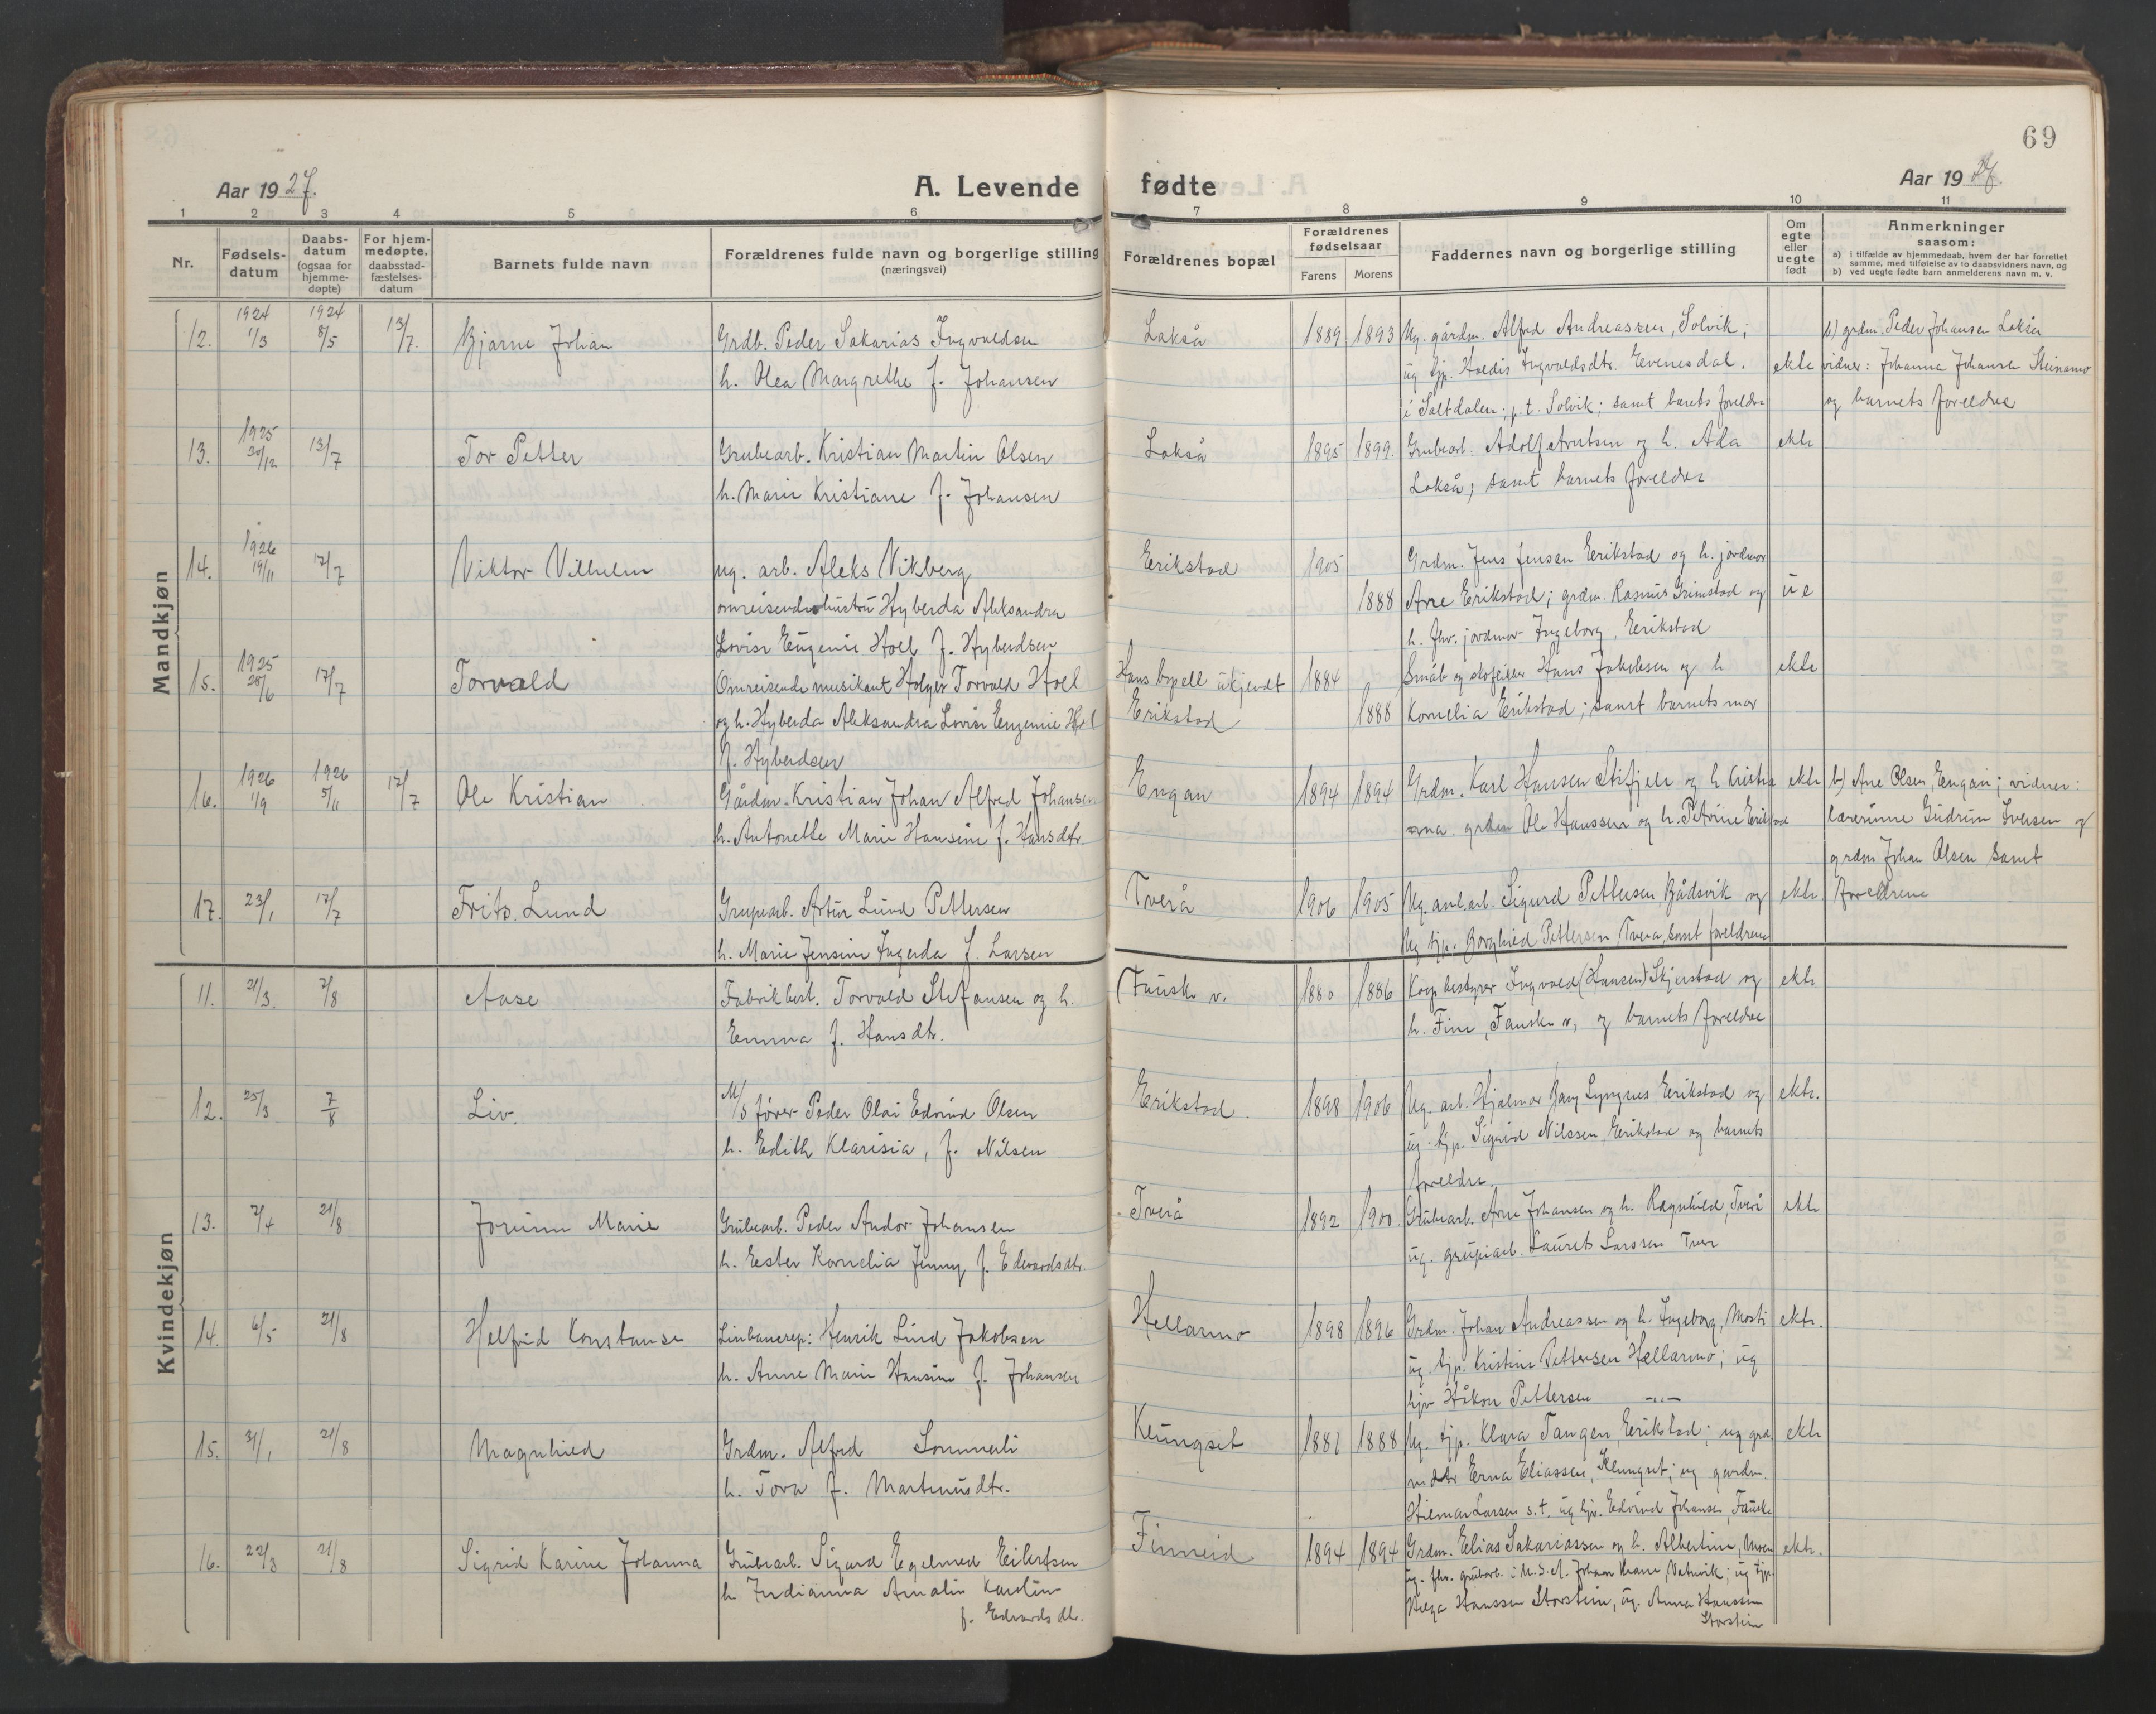 69
Aar 1927. A. Levende fødte Aar 1927.
1 2 3 4 5 6 7 8 9 10 11
Nr. Fødsels-datum Daabs-datum (ogsaa for hjemme-døpte) For hjem-medøpte, daabsstad-fæstelses-datum Barnets fulde navn Forældrenes fulde navn og borgerlige stilling (næringsvei) Forældrenes bopæl Forældrenes fødselsaar Farens Morens Faddernes navn og borgerlige stilling Om egte eller uegte født Anmerkninger saasom: a) i tilfælde av hjemmedaab, hvem der har forrettet samme, med tilføielse av to daabsvidners navn, og b) ved uegte fødte barn anmelderens navn m. v.
Mandkjøn
12. 1924 1/3 1924 8/5 13/7. Bjarne Johan Grdb. Peder Sakarias Ingvaldsen Lakså 1889 1893 Ug. gårdm. Alfred Andreassen, Solvik; b) grdm. Peder Johansen Lakså
h. Olea Margrethe f. Johansen ug tjp. Hordis Ingvaldsdtr. Evenesdal. ekte vidner: Johanna Johansen Steinamo
i Saltdalen. p.t. Solvik; samt barnets foreldre og barnets foreldre
13. 1925 30/12 13/7 Tor Petter Grubearb. Kristian Martin Olsen Lakså 1895 1899. Grubearb. Adolf Arntsen og h. Ada ekte
h. Marie Kristiane f. Johansen Lakså; samt barnets foreldre
14. 1926 19/11 17/7 Viktor Vilhelm ug. arb. Aleks Vikberg Erikstad 1905 Grdm. Jens Jensen Erikstad og h. jordmor
omreisende hustru Hyberda Aleksandra 1888 Arre Erikstad; grdm. Rasmus Grimstad og u e
Lovise Eugenie Hoel f. Hyberdsen h. fhv. jordmor Ingeborg, Erikstad
15. 1925 28/6 17/7 Torvald Omreisende musikant Holger Torvald Hoel Hans bopell ukjendt 1884 Småb og skofliker Hans Jakobsen og h ekte
og h. Hyberda Aleksandra Lovise Eugenie Hoel Erikstad 1888 Kornelia Erikstad; samt barnets mor
f. Hyberdsen
16. 1926 1/9 1926 5/11 17/7 Ole Kristian Gårdm. Kristian Johan Alfred Johansen Engan 1894 1894 Grdm. Karl Hansen Stifjell og h. Kristi ekte b) Arne Olsen, Engan; vidner:
h. Antonette Marie Hansine f. Hansdtr. ana. grdm Ole Hanssen og h. Petrine Erikstad lærerinne Gudrun Iversen og
grdm Johan Olsen samt
17. 23/1 17/7 Frits Lund Grupearb. Artur Lund Pettersen Tverå 1906 1905 Ug. anl.arb. Sigurd Pettersen, Bådsvik og ekte foreldrene
h. Marie Jensine Ingerda f. Larsen Ug tjp. Borghild Pettersen, Tverå, samt foreldrene
Kvindekjøn
11. 21/3. 7/8 Aase Fabrikbest. Torvald Stefansen og h. Fauske v. 1880 1886 Koop. bestyrer Ingvald (Hansen) Skjerstad og ekte
Emma f. Hansdtr. h. Fine, Fauske v, og barnets foreldre
12. 25/3 7/8 Liv. M/S fører Peder Olai Edvind Olsen Erikstad. 1898 1906 Ug. arb. Hjalmar Bang Lyngnes Erikstad og ekte.
h. Edith Klarisia, f. Nilsen ug. tjp. Sigrid Nilssen Erikstad og barnets
foreldre.
13. 7/4 21/8 Jorunn Marie Grubearb. Peder Andor Johansen Tverå 1892 1900. Grubearb. Arne Johansen og h. Ragnhild, Tverå ekte
h. Ester Kornelia Jenny f. Edvardsdtr. ug. grupearb. Laurets Larssen Tverå
14. 6/5 21/8 Helfrid Konstanse Linbanerep: Henrik Lind Jakobsen Hellarmo 1898 1896 Grdm. Johan Andreassen og h. Ingeborg, Mosti ekte.
h. Anne Marie Hansine f. Johansen ug. tjp. Kristine Pettersen Hellarmo; ug
tjv Håkon Pettersen —"—
15. 31/1 21/8 Magnhild Grdm. Alfred Sommerli Klungset 1881 1888 Ug. tjp. Klara Tangen, Erikstad; ug grd ekte
h. Tora f. Martinusdtr. mdtr Erna Eliassen, Klungset; ug gardm.
Hilmar Larsen s.t. ug tjv. Edvind Johansen, Fauske
16. 22/3 21/8 Sigrid Karine Johanna Grubearb. Sigurd Egelmed Eilertsen Finneid 1894 1894 Grdm. Elias Sakariassen og h. Albertine, Moen ekte.
h Indianna Amalie Karoline ug. fhv. grubearb. i U.S.A. Johan Kvam, Vatnvik; ug tjp.
f. Edvardsdtr. Helga Hanssen Storstein, ug. Anna Hanssen
Storstein